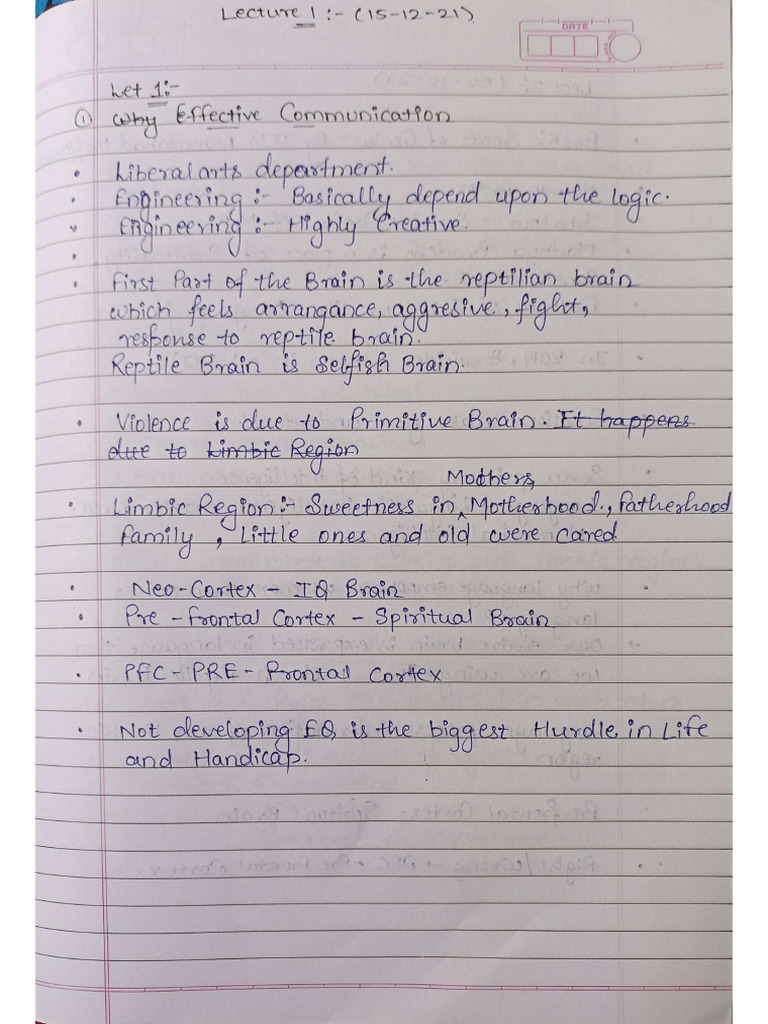 Lecture 1 :- (15-12-21)
DATE
Let 1:-
① Why Effective Communication
• Liberal arts department.
• Engineering :- Basically depend upon the logic.
• Engineering :- Highly Creative.
•
• First Part of the Brain is the reptilian brain
which feels arrangance, aggresive, fight,
response to reptile brain.
Reptile Brain is Selfish Brain.
• Violence is due to Primitive Brain. It happens
due to Limbic Region
Mothers,
• Limbic Region :- Sweetness in ^ Motherhood., Fatherhood
family, Little ones and old were cared
• Neo-Cortex - IQ Brain
• Pre-frontal Cortex - Spiritual Brain
• PFC - PRE - Frontal Cortex
• Not developing EQ is the biggest Hurdle in Life
and Handicap.